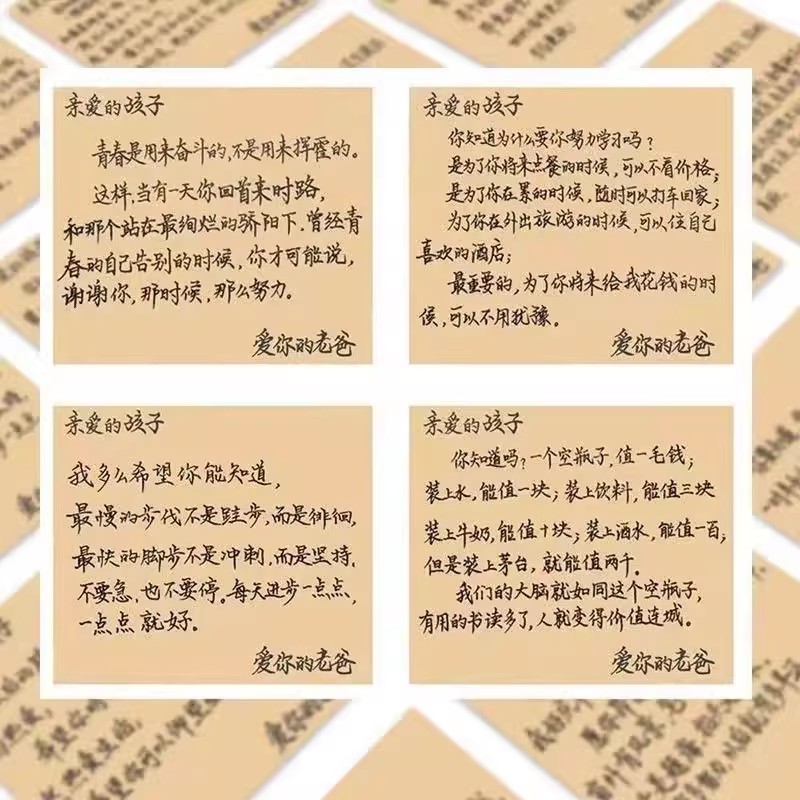 亲爱的孩子
青春是用来奋斗的,不是用来挥霍的。
这样,当有一天你回首来时路,
和那个站在最绚烂的骄阳下,曾经青
春的自己告别的时候,你才可能说,
谢谢你,那时候,那么努力。
爱你的老爸
亲爱的孩子
你知道为什么要你努力学习吗?
是为了你将来点餐的时候,可以不看价格;
是为了你在累的时候,随时可以打车回家;
为了你在外出旅游的时候,可以住自己
喜欢的酒店;
最重要的,为了你将来给我花钱的时
候,可以不用犹豫。
爱你的老爸
亲爱的孩子
我多么希望你能知道,
最慢的步伐不是跬步,而是徘徊,
最快的脚步不是冲刺,而是坚持,
不要急,也不要停。每天进步一点点,
一点点就好。
爱你的老爸
亲爱的孩子
你知道吗?一个空瓶子,值一毛钱;
装上水,能值一块;装上饮料,能值三块
装上牛奶,能值十块;装上酒水,能值一百;
但是装上茅台,就能值两千。
我们的大脑就如同这个空瓶子,
有用的书读多了,人就变得价值连城。
爱你的老爸